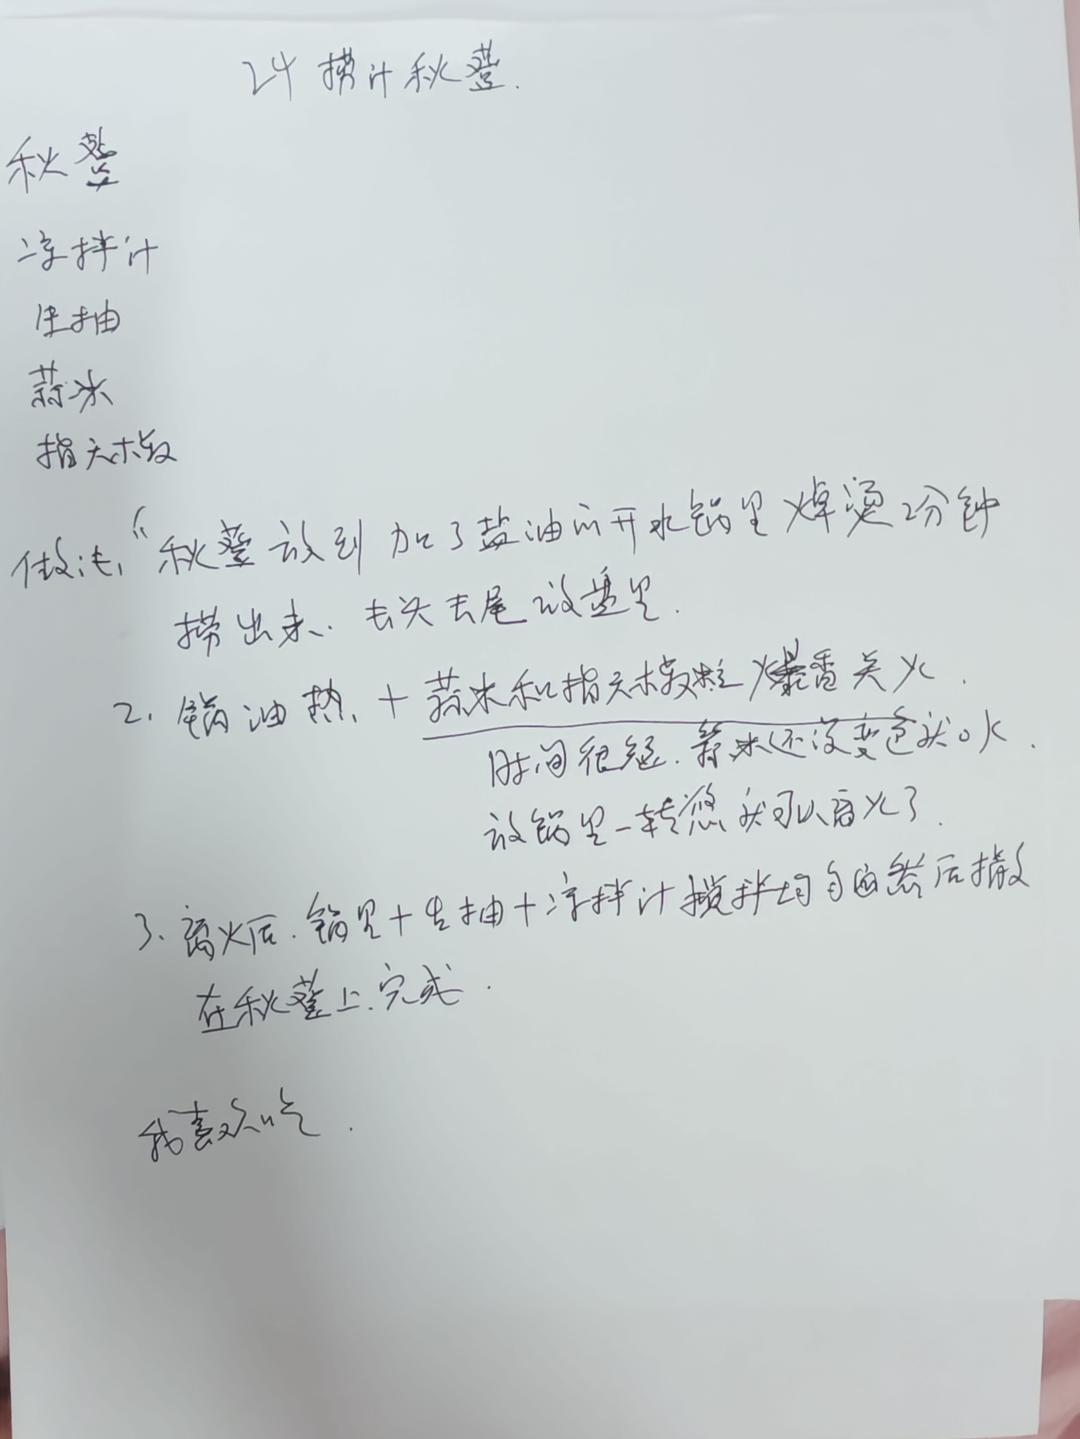 24 捞汁秋葵.
秋葵
凉拌汁
生抽
蒜米
指天椒
做法、1、秋葵放到加了盐油的开水锅里焯烫2分钟
捞出来. 去头去尾放盘里.
2. 锅油热, + 蒜米和指天椒粒爆香关火.
时间很短. 蒜米还没变色状
放锅里一转悠就可以离火了.
3. 离火后. 锅里+生抽+凉拌汁搅拌均匀 然后撒
在秋葵上. 完成.
我喜欢吃.